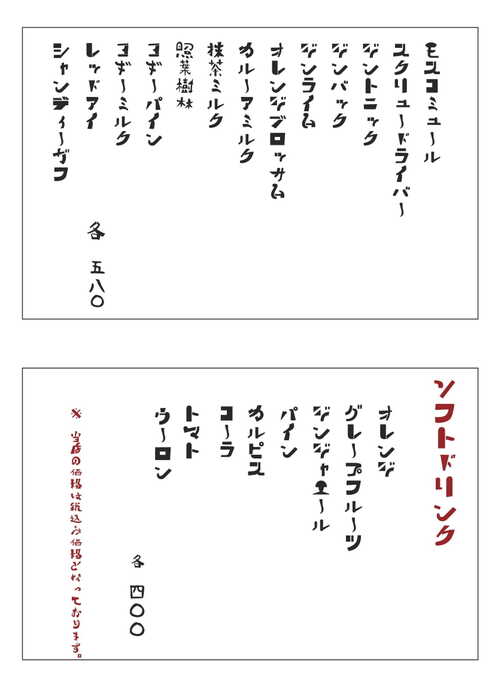 モスコミュール
スクリュードライバー
ジントニック
ジンバック
ジンライム
オレンジブロッサム
カルーアミルク
抹茶ミルク
照葉樹林
コギーパイン
コギーミルク
レッドアイ
シャンディーガフ
各 五八〇
ソフトドリンク
オレンジ
グレープフルーツ
ジンジャエール
パイン
カルピス
コーラ
トマト
ウーロン
各 四〇〇
※ 当店の価格は税込み価格となっております。